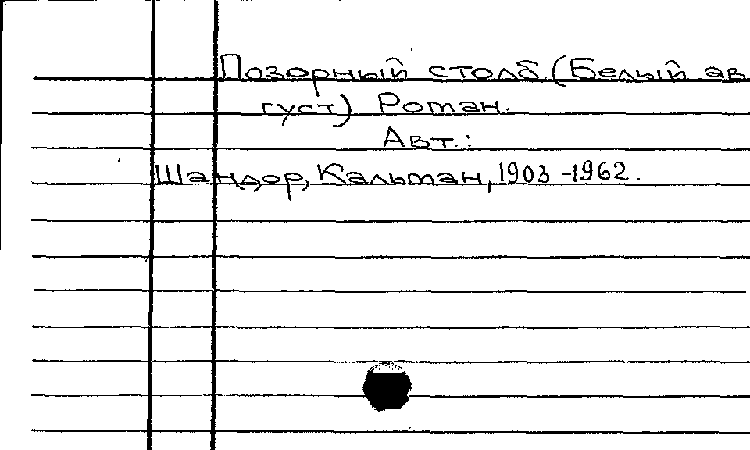 Позорный столб (Белый ав
густ) Роман.
Авт.:
Шандор, Кальман, 1903-1962.